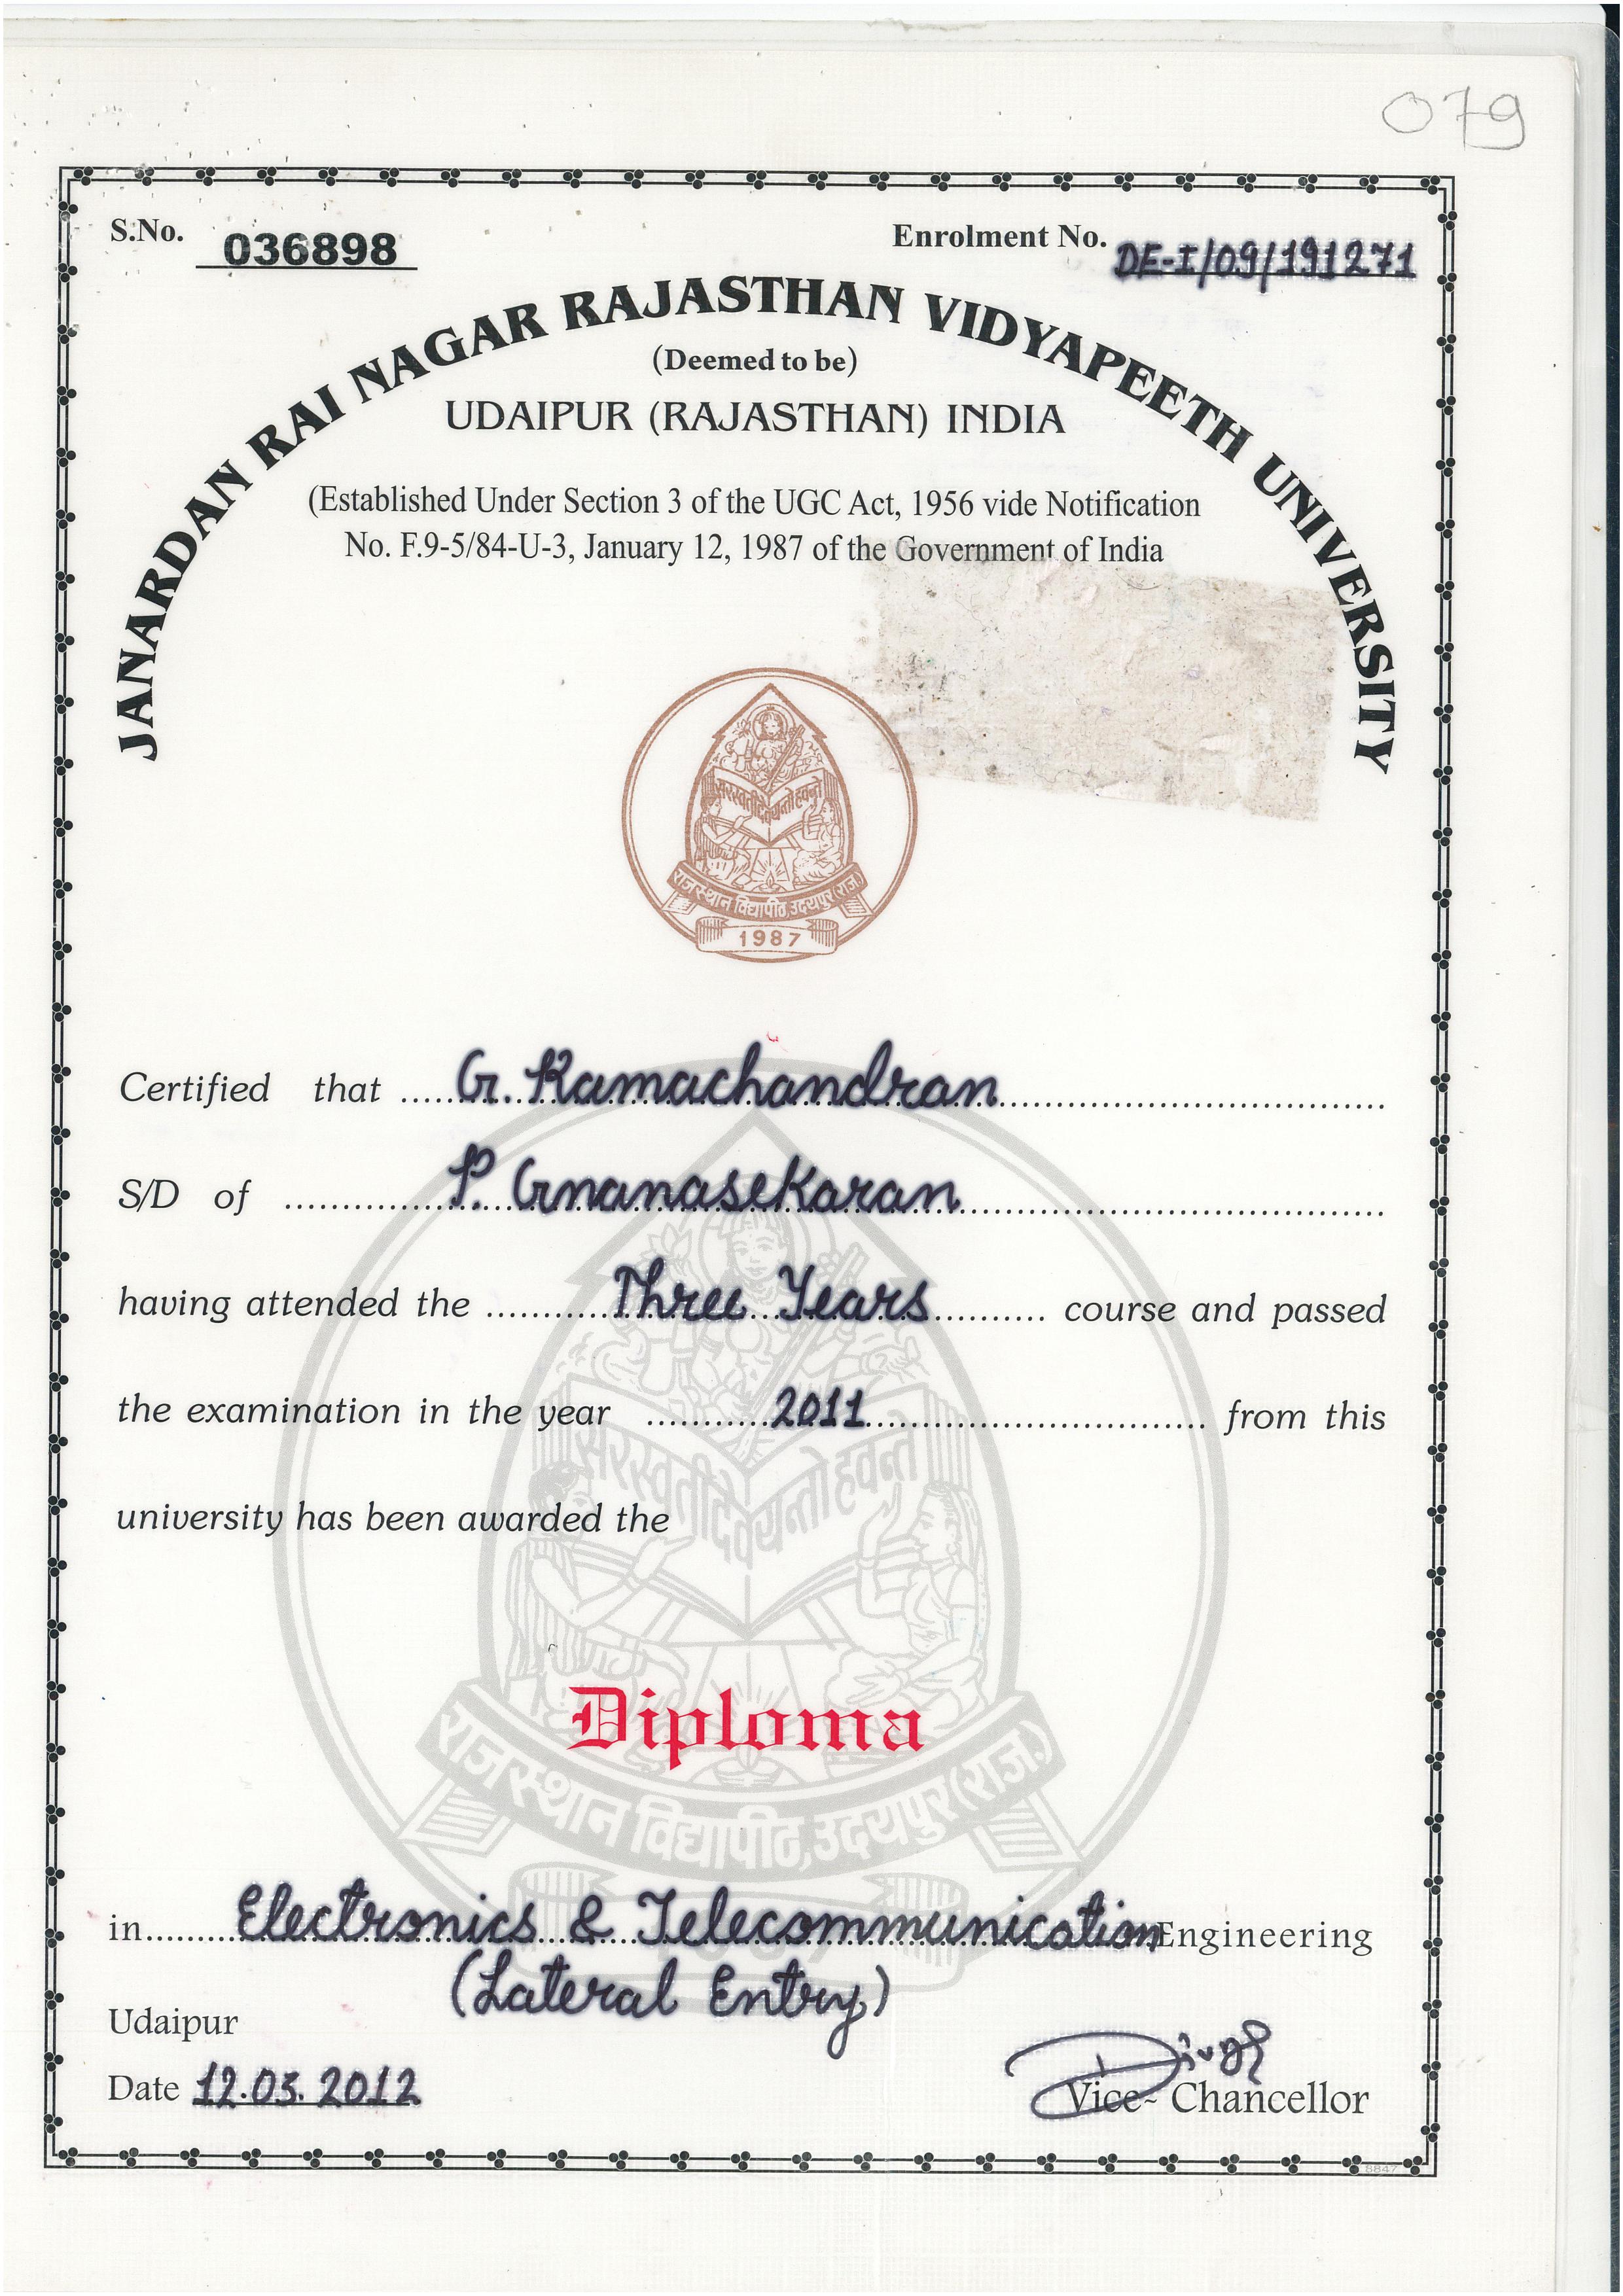 079
S.No. 036898
Enrolment No. DE-I/09/191271
JANARDAN RAI NAGAR RAJASTHAN VIDYAPEETH UNIVERSITY
(Deemed to be)
UDAIPUR (RAJASTHAN) INDIA
(Established Under Section 3 of the UGC Act, 1956 vide Notification
No. F.9-5/84-U-3, January 12, 1987 of the Government of India
सरस्वतीं देवयन्तो हवन्ते
राजस्थान विद्यापीठ, उदयपुर (राज.)
1987
Certified that G. Ramachandran
S/D of P. Gnanasekaran
having attended the Three Years course and passed
the examination in the year 2011 from this
university has been awarded the
Diploma
सरस्वतीं देवयन्तो हवन्ते
राजस्थान विद्यापीठ, उदयपुर (राज.)
in Electronics & Telecommunication Engineering
(Lateral Entry)
Udaipur
Date 12.03.2012
Vice- Chancellor
8847